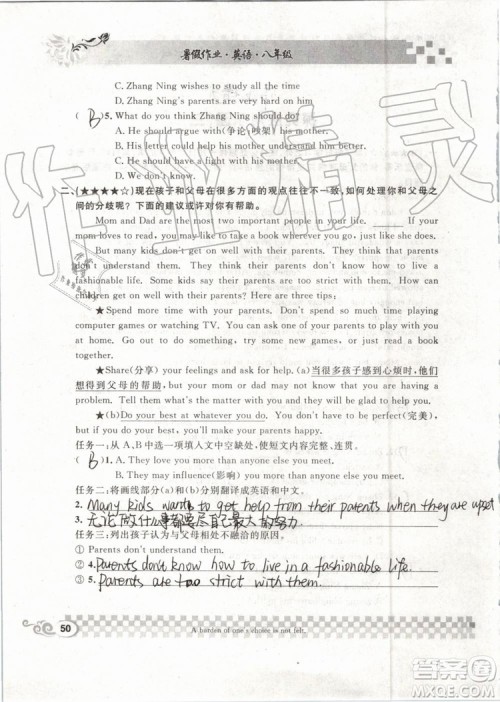 暑假作业·英语·八年级
C. Zhang Ning wishes to study all the time
D. Zhang Ning's parents are very hard on him
( B )5. What do you think Zhang Ning should do?
A. He should argue with(争论,吵架) his mother
B. His letter could help his mother understand
C. He should have a fight with his mother
D. We don't know.
二、(★★★★☆)现在孩子和父母在很多方面的观点往往不一致,如何处理你和父母之
间的分歧呢?下面的建议或许对你有帮助。
Mom and Dad are the most two important people in your life. If your
mom loves to read, you may like to read because you are just like she does.
But many kids don't get on well with their parents. They think that parents
don't understand them. They think their parents don't know how to live a
fashionable life. Some kids say their parents are too strict with them. How can
children get on well with their parents? Here are three tips:
★Spend more time with your parents. Don't spend so much time playing
computer games or watching TV. You can find something you and your parents
all enjoy. You can go out to do something, try some new games, or just read a book
together.
★Share(分享) your feelings and ask for help. (a)当很多孩子感到心烦时,他们
想得到父母的帮助, but your mom or dad may not know that you are having a
problem. Tell them what's the matter with you and they will be glad to help you.
★(b)Do your best at whatever you do. You don't have to be perfect(完美),
but if you do your best, you'll make your parents happy.
任务一:从A、B中选一项填入文中空缺处,使语篇完整、连贯。
( B )1. A. They love you more than anyone else you meet.
B. They may influence(影响) you more than anyone else you meet.
任务二:将画线部分(a)和(b)分别翻译成英语和中文。
2. Many kids want to get help from their parents when they are upset
3. 无论做什么事都要尽自己最大的努力.
任务三:列出孩子认为与父母相处不融洽的原因。
① Parents don't understand them.
② 4. Parents don't know how to live in a fashionable life.
③ 5. Parents are too strict with them.
50
A burden of one's choice is not felt.